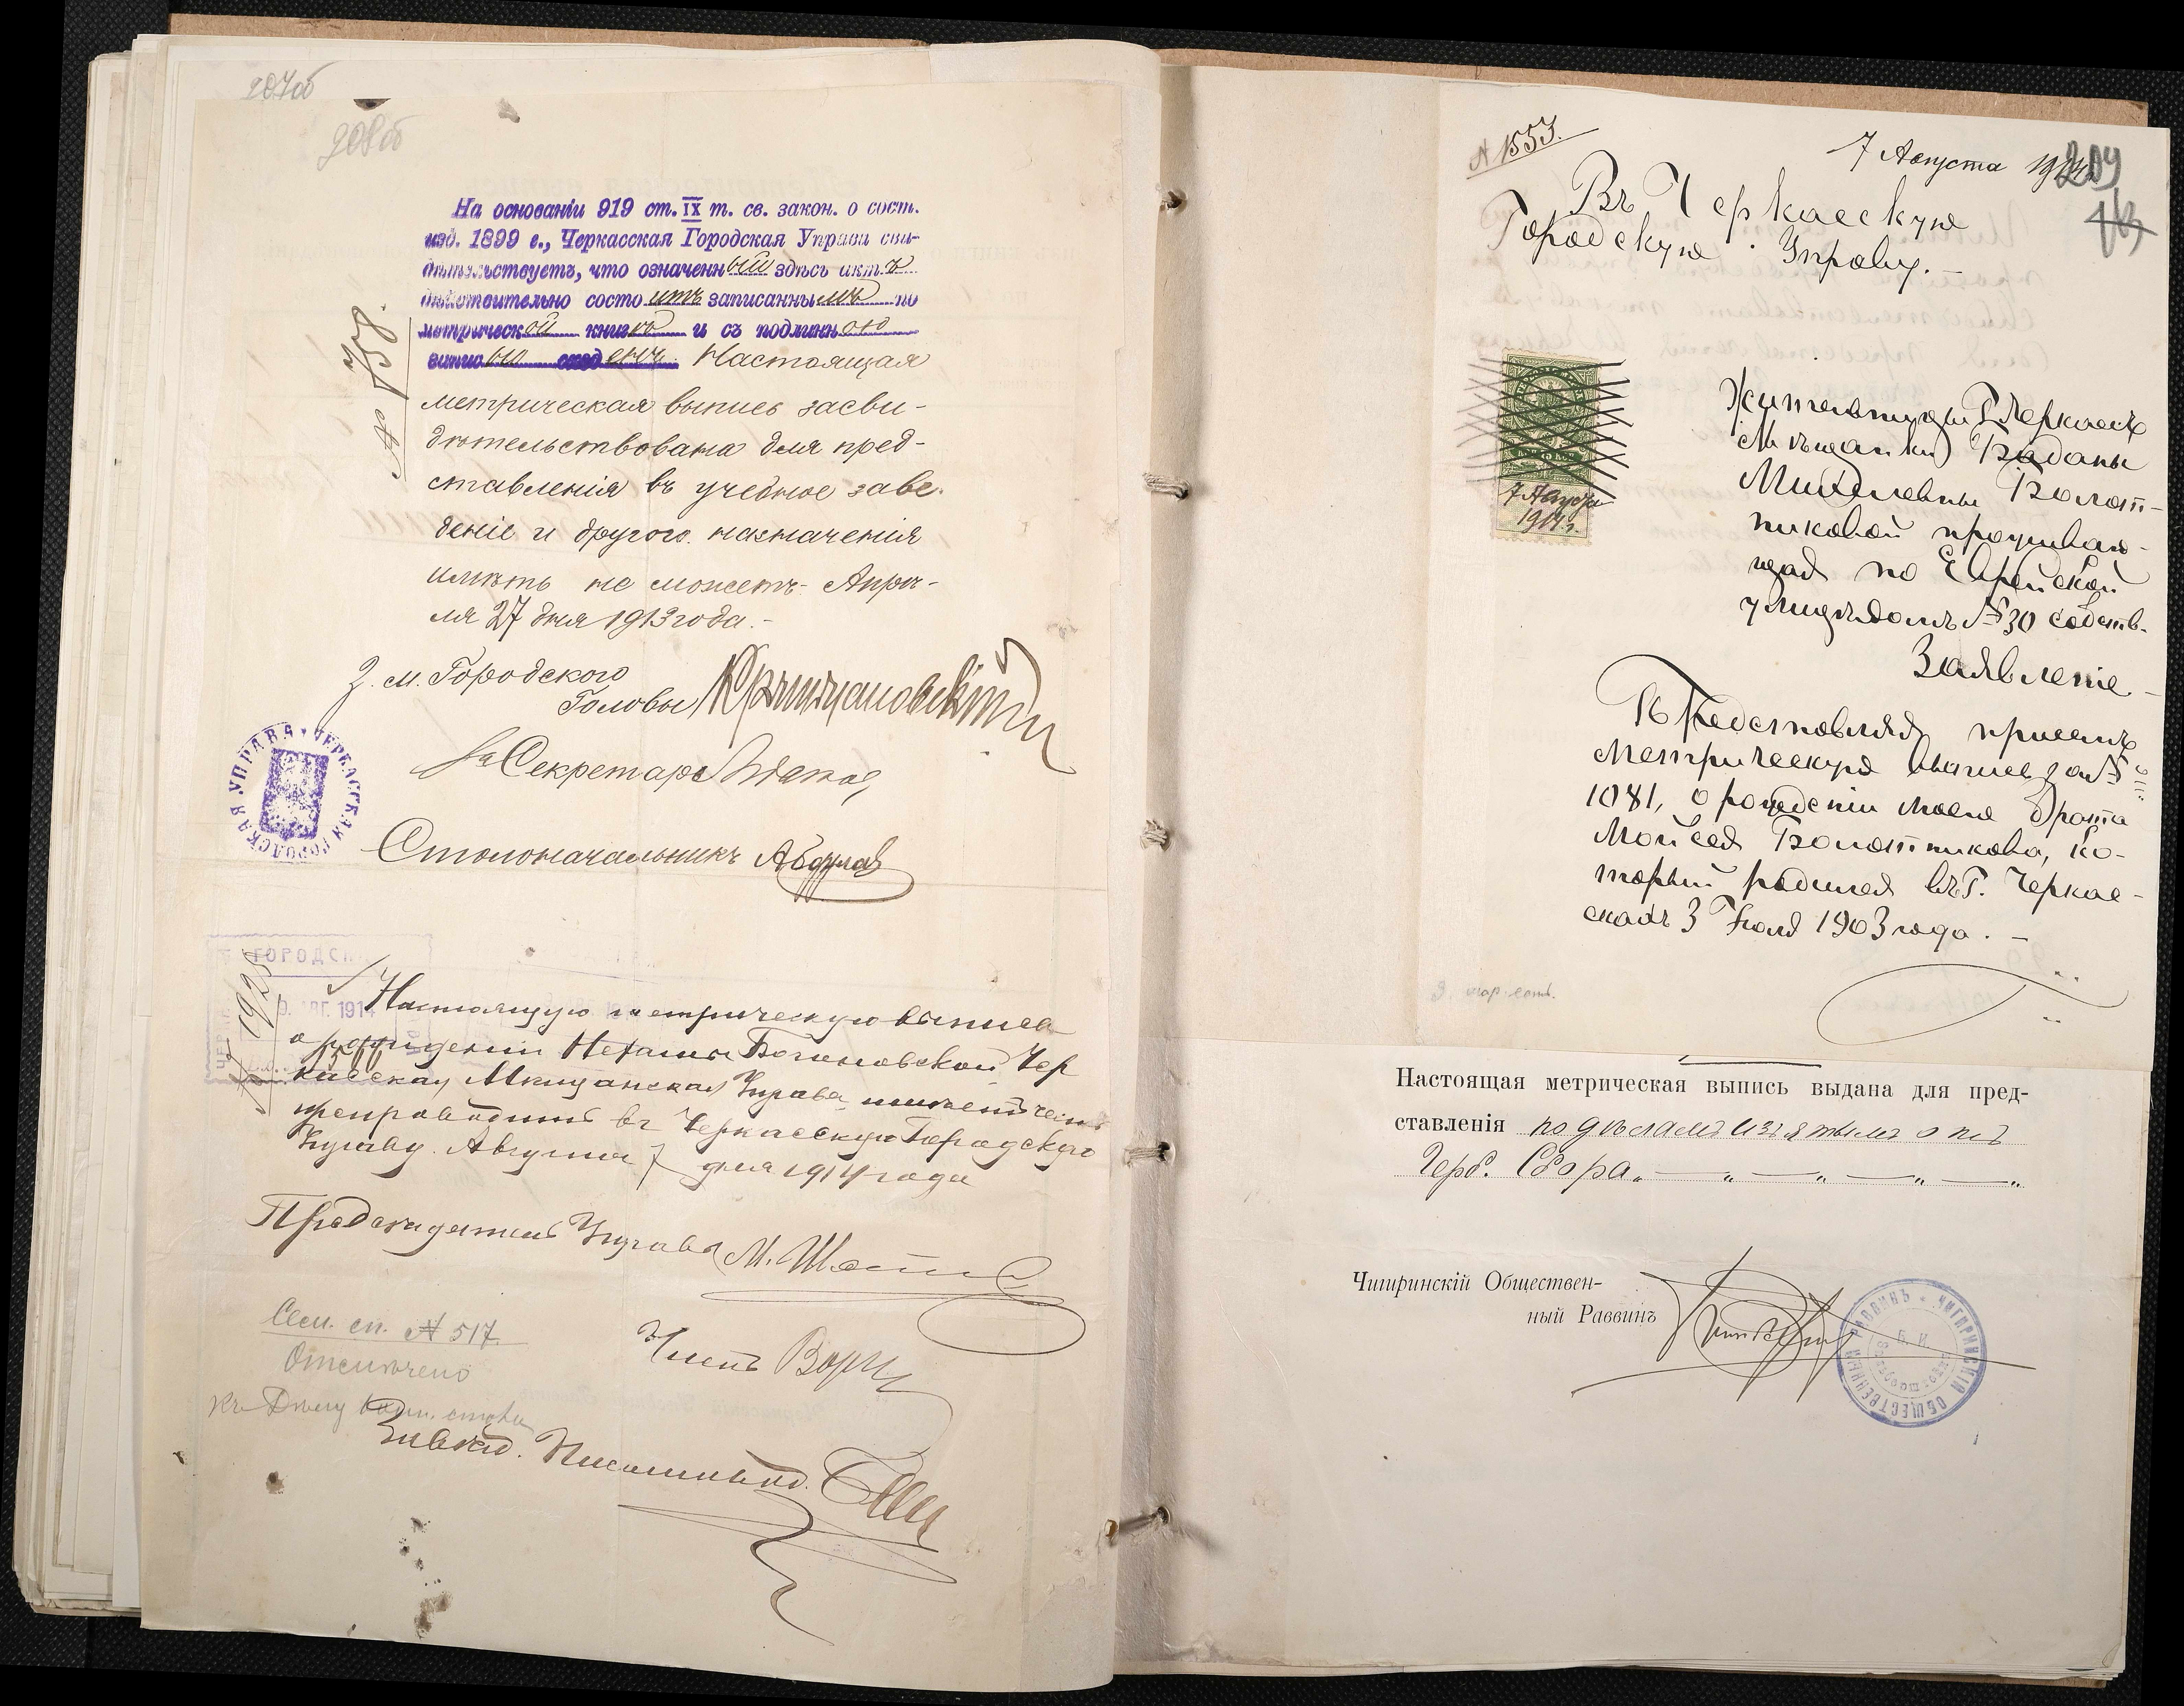 207об
208об
На основаніи 919 ст. IX т. св. закон. о сост.
изд. 1899 г., Черкасская Городская Управа сви-
дѣтельствуетъ, что означенный здѣсь актъ
дѣйствительно состоитъ записаннымъ по
метрической книгѣ и съ подлинною
Настоящая
метрическая выпись засви-
дѣтельствована для пред-
ставленія въ учебное заве-
деніе и другого назначенія
имѣть не можетъ. Апрѣ-
ля 27 дня 1913 года.-
№ 738.
З. м. Городского
Головы
За Секретаря
Столоначальникъ
ЧЕРКАССКАЯ ГОРОДСКАЯ УПРАВА
ГОРОДСК
9. АВГ. 1914
№ 1925
Настоящую метрическую выпись
о рожденіи Нехамы Богиновской Чер
касская Мѣщанская Управа имѣетъ честь
препроводить въ Черкасскую Городскую
Управу. Августа 7 дня 1914 года
Предсѣдатель Управы М.
Членъ
Сем. сп. № 517.
Отмѣчено
Къ Дѣлу
Завѣд. Письмывод.
№ 1553.
7 Августа 1914
209
Въ Черкасскую
Городскую Управу.-
7 Августа
1914 г.
Жительницы Г. Черкассъ
Мѣщанки Баданы
Михелевны Болот-
никовой проживаю-
щая по Еврейской
улицѣ домъ № 30 собств.
Заявленіе-
Представляя присемъ
метрическую выпись за №
1081, о рожденіи моего брата
Мойсея Болотникова, ко-
торый родился въ Г. Черкас-
сахъ 3 Іюля 1903 года.-
Настоящая метрическая выпись выдана для пред-
ставленія по дѣламъ изъятымъ отъ
Герб. Сбора.
Чигиринскій Обществен-
ный Раввинъ
ЧИГИРИНСКІЙ ОБЩЕСТВЕННЫЙ РАВВИНЪ